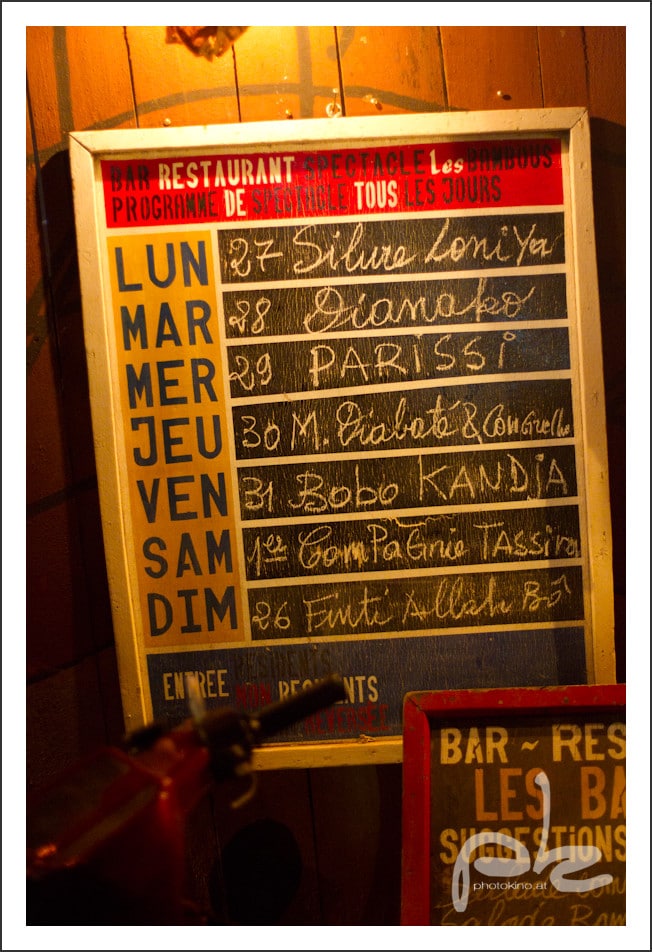 BAR RESTAURANT SPECTACLE Les BAMBOUS
PROGRAMME DE SPECTACLE TOUS LES JOURS
LUN 27 Silure Loni Ya
MAR 28 Dianako
MER 29 PARISSI
JEU 30 M. Diabaté &
VEN 31 Bobo KANDJA
SAM 1er ComPaGnie
DIM 26 Allah Bô
ENTREE RESIDENTS
NON RESIDENTS
BAR ~ RES
LES BA
SUGGESTIONS
Salade Bam
pk
photokino.at